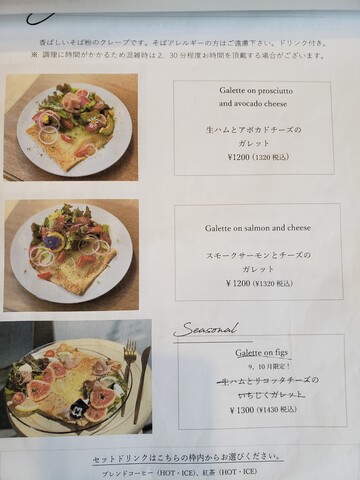 香ばしいそば粉のクレープです。そばアレルギーの方はご遠慮下さい。ドリンク付き。
※ 調理に時間がかかるため混雑時は2、30分程度お時間を頂戴する場合がございます。
Galette on prosciutto
and avocado cheese
生ハムとアボカドチーズの
ガレット
¥1200 (1320 税込)
Galette on salmon and cheese
スモークサーモンとチーズの
ガレット
¥1200 (¥1320 税込)
Seasonal
Galette on figs
9、10月限定！
生ハムとリコッタチーズの
いちじくガレット
¥1300 (¥1430 税込)
セットドリンクはこちらの枠内からお選びください。
ブレンドコーヒー（HOT・ICE）、紅茶（HOT・ICE）